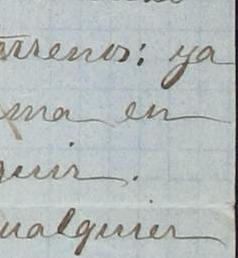 terrenos: ya
ma en
guir.
ualquier